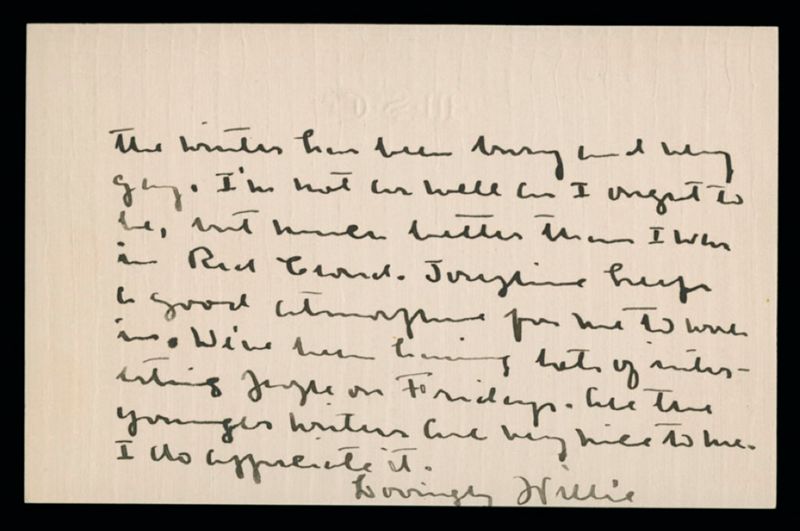 The winter has been busy and very
gay. I'm not as well as I ought to
be, but much better than I was
in Red Cloud. Josephine keeps
a good atmosphere for me to work
in. We've been having lots of inter-
esting people on Fridays. All the
younger writers are very nice to me.
I do appreciate it.
Lovingly Willie